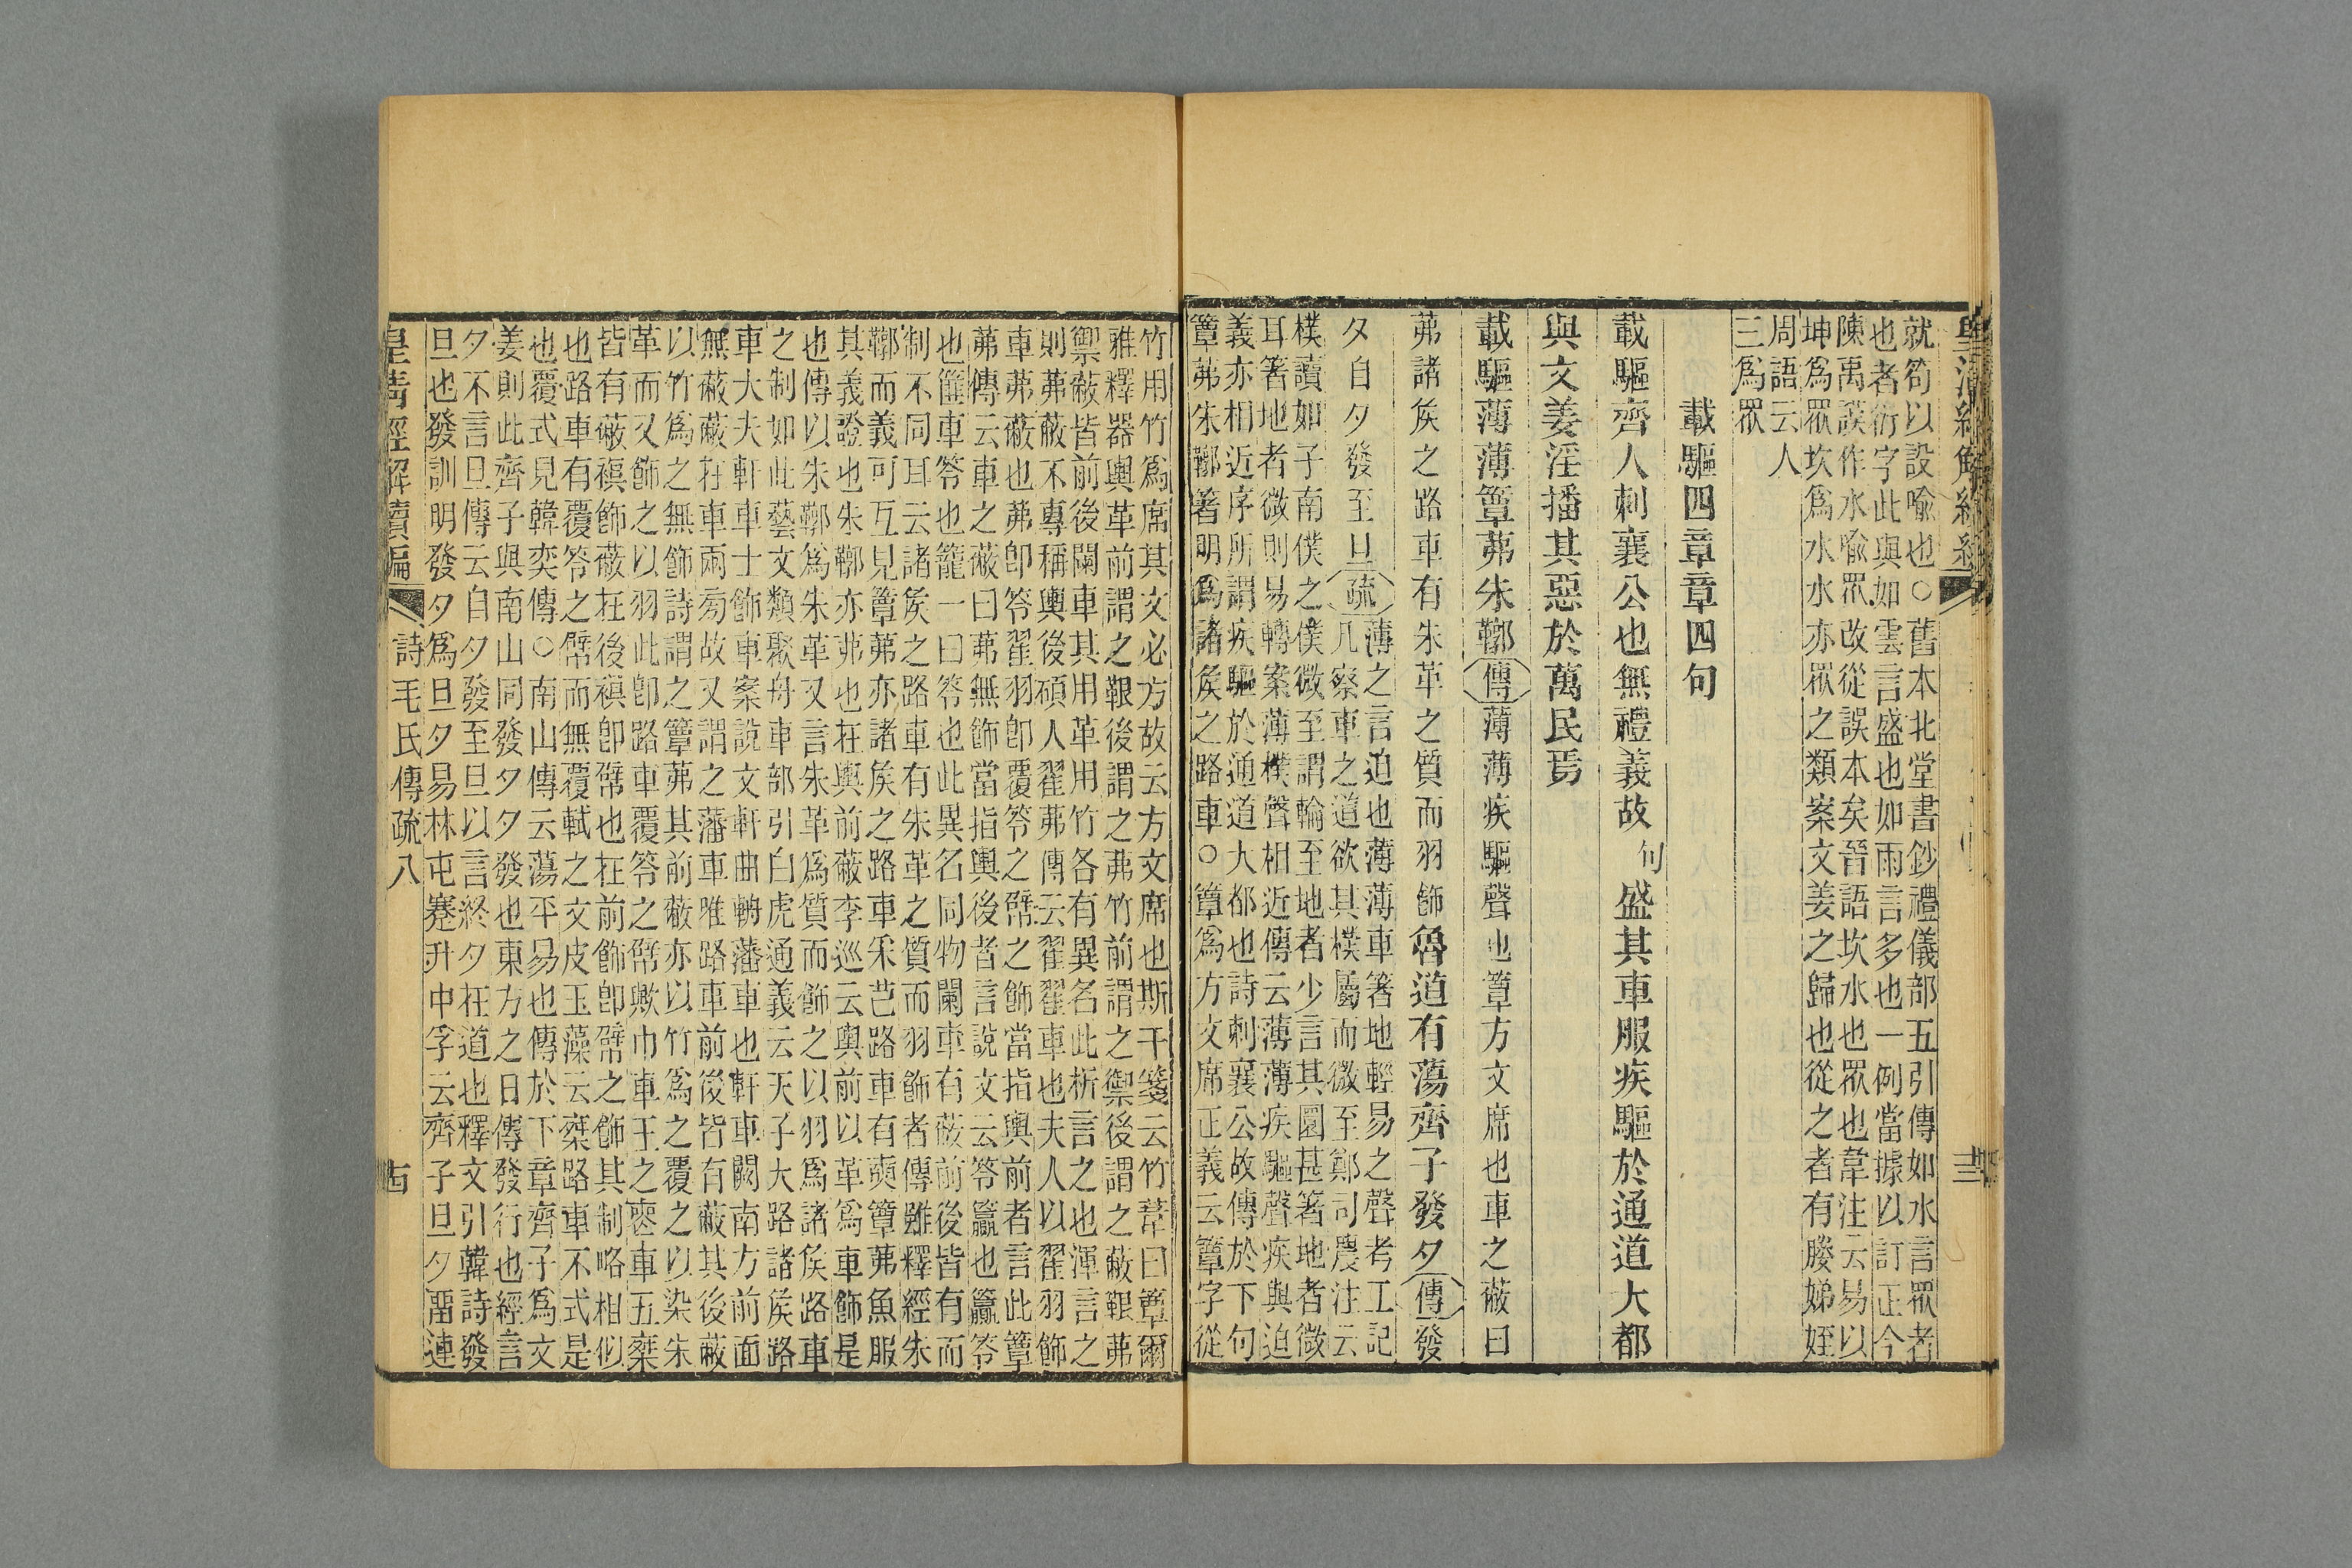 就笱以設喻也○舊本北堂書鈔禮儀部五引傳如水言眾者
也者衍字此與如雲言盛也如雨言多也一例當據以訂正今
陳禹謨作水喻眾改從誤本矣晉語坎水也眾也韋注云易以
坤為眾坎為水水亦眾之類案文姜之歸也從之者有媵娣姪
周語云人
三為眾
載驅四章章四句
載驅齊人刺襄公也無禮義故句盛其車服疾驅於通道大都
與文姜淫播其惡於萬民焉
載驅薄薄簟茀朱鞹傳薄薄疾驅聲也簟方文席也車之蔽曰
茀諸矦之路車有朱革之質而羽飾魯道有蕩齊子發夕傳發
夕自夕發至旦疏薄之言迫也薄薄車箸地輕易之聲考工記
凡察車之道欲其樸屬而微至鄭司農注云
樸讀如子南僕之僕微至謂輪至地者少言其圜甚箸地者微
耳箸地者微則易轉案薄樸聲相近傳云薄薄疾驅聲疾與迫
義亦相近序所謂疾驅於通道大都也詩刺襄公故傳於下句
簟茀朱鞹箸明為諸矦之路車○簟為方文席正義云簟字從
竹用竹為席其文必方故云方文席也斯干箋云竹葦曰簟爾
雅釋器輿革前謂之鞎後謂之茀竹前謂之禦後謂之蔽鞎茀
禦蔽皆前後闌車其用革用竹各有異名此析言之也渾言之
則茀蔽不專稱輿後碩人翟茀傳云翟翟車也夫人以翟羽飾
車茀蔽也茀卽笭翟羽卽覆笭之幦之飾當指輿前者言此簟
茀傳云車之蔽曰茀無飾當指輿後者言說文云笭籯也籯笭
也篚車笭也籠一曰笭也此異名同物闌車有蔽前後皆有而
制不同耳云諸矦之路車有朱革之質而羽飾者傳雖釋經朱
鞹而義可互見簟茀亦諸矦之路車采芑路車有奭簟茀魚服
其義證也朱鞹亦茀也在輿前蔽李巡云輿前以革為車飾是
也傳以朱鞹為朱革又言朱革為質而飾之以羽為諸矦路車
之制如此藝文類聚舟車部引白虎通義云天子大路諸矦路
車大夫軒車士飾車案說文軒曲輈藩車也軒車闕南方前面
無蔽蔽在車兩旁故又謂之藩車唯路車前後皆有蔽其後蔽
以竹為之無飾詩謂之簟茀其前蔽亦以竹為之覆之以染朱
革而又飾之以羽此卽路車覆笭之幦歟巾車王之喪車五乘
皆有蔽𧜀飾蔽在後𧜀卽幦也在前飾卽幦之飾其制略相似
也路車有覆笭之幦而無覆軾之文皮玉藻云乘路車不式是
也覆式見韓奕傳○南山傳云蕩平易也傳於下章齊子為文
姜則此齊子與南山同發夕夕發也東方之日傳發行也經言
夕不言旦傳云自夕發至旦以言終夕在道也釋文引韓詩發
旦也發訓明發夕為旦夕易林屯蹇升中孚云齊子旦夕畱連
皇清經解續編
詩毛氏傳疏八